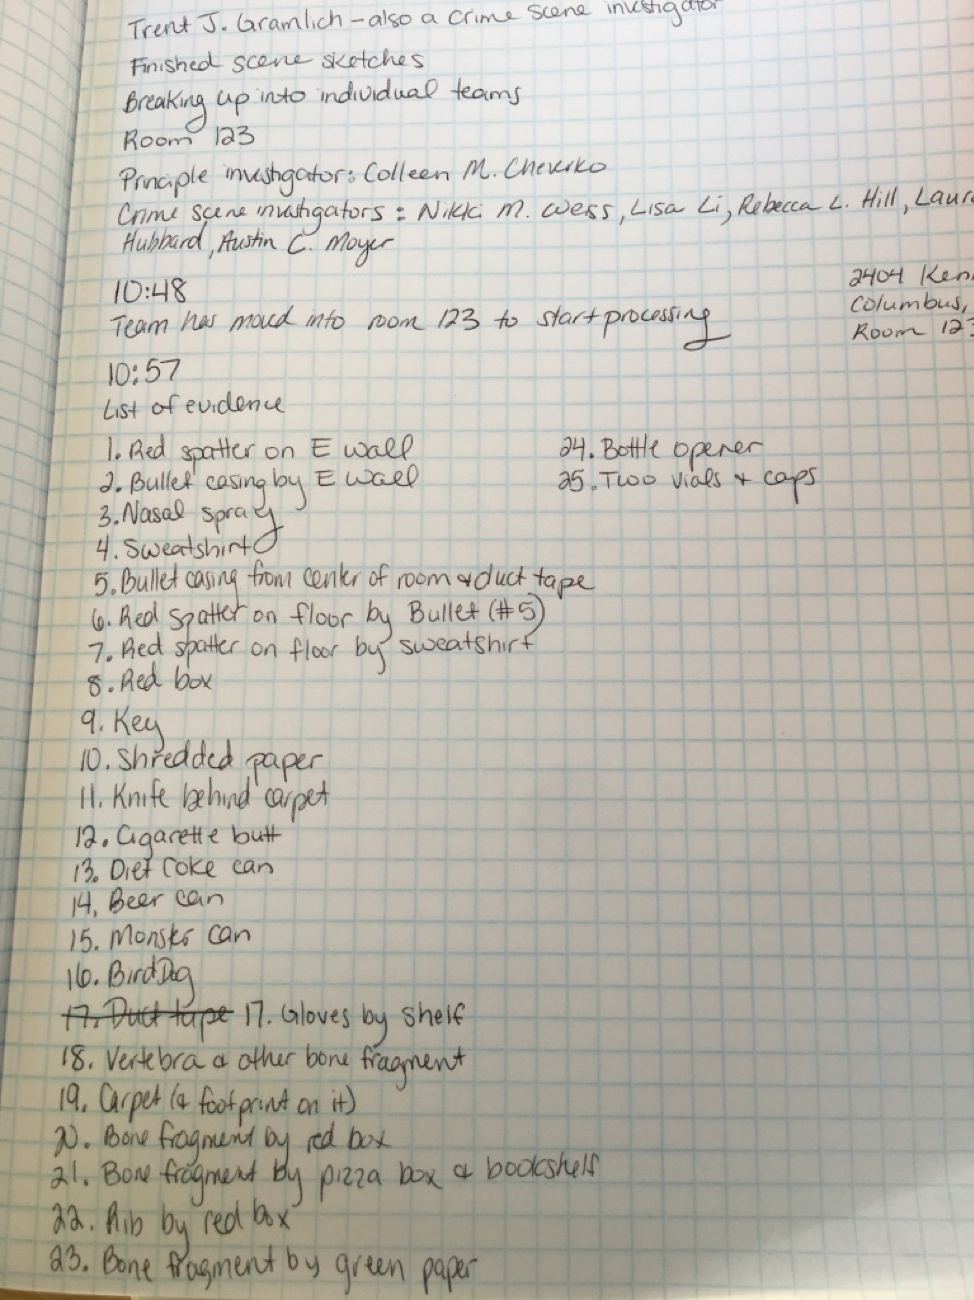 Trent J. Gramlich - also a crime scene investigator
Finished scene sketches
Breaking up into individual teams
Room 123
Principle investigator: Colleen M.
Crime scene investigators: Nikki M. Weiss, Lisa Li, Rebecca L. Hill, Laura
Hubbard, Austin C. Moyer
10:48
Team has moved into room 123 to start processing
2404 Ken
Columbus,
Room 123
10:57
List of evidence
1. Red spatter on E wall
2. Bullet casing by E wall
3. Nasal spray
4. Sweatshirt
5. Bullet casing from center of room & duct tape
6. Red spatter on floor by Bullet (#5)
7. Red spatter on floor by sweatshirt
8. Red box
9. Key
10. Shredded paper
11. Knife behind carpet
12. Cigarette butt
13. Diet Coke can
14. Beer can
15. Monster can
16. BirdDog
17. Duct tape 17. Gloves by shelf
18. Vertebra & other bone fragment
19. Carpet (& footprint on it)
20. Bone fragment by red box
21. Bone fragment by pizza box & bookshelf
22. Rib by red box
23. Bone fragment by green paper
24. Bottle opener
25. Two vials & caps